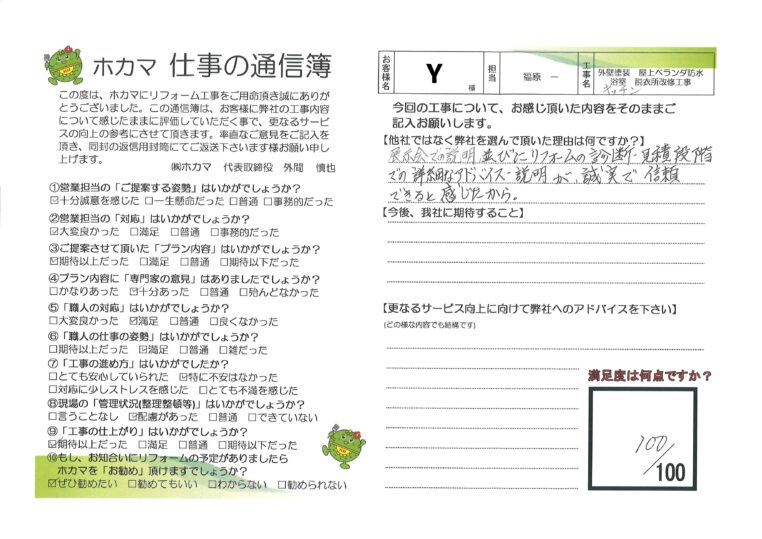 ホカマ 仕事の通信簿
この度は、ホカマにリフォーム工事をご用命頂き誠にありが
とうございました。この通信簿は、お客様に弊社の工事内容
について感じたままに評価していただく事で、更なるサービ
スの向上の参考にさせて頂きます。率直なご意見をご記入を
頂き、同封の返信用封筒にてご返送下さいます様お願い申し
上げます。
㈱ホカマ 代表取締役 外間 慎也
①営業担当の「ご提案する姿勢」はいかがでしょうか?
☑十分誠意を感じた □一生懸命だった □普通 □事務的だった
②営業担当の「対応」はいかがでしょうか?
☑大変良かった □満足 □普通 □事務的だった
③ご提案させて頂いた「プラン内容」はいかがでしょうか?
☑期待以上だった □満足 □普通 □期待以下だった
④プラン内容に「専門家の意見」はありましたでしょうか?
□かなりあった ☑十分あった □普通 □殆んどなかった
⑤「職人の対応」はいかがでしょうか?
□大変良かった ☑満足 □普通 □良くなかった
⑥「職人の仕事の姿勢」はいかがでしょうか?
□期待以上だった ☑満足 □普通 □雑だった
⑦「工事の進め方」はいかがでしたか?
□とても安心していられた ☑特に不安はなかった
□対応に少しストレスを感じた □とても不満を感じた
⑧現場の「管理状況(整理整頓等)」はいかがでしょうか?
□言うことなし ☑配慮があった □普通 □できていない
⑨「工事の仕上がり」はいかがでしょうか?
☑期待以上だった □満足 □普通 □期待以下だった
⑩もし、お知合いにリフォームの予定がありましたら
ホカマを「お勧め」頂けますでしょうか?
☑ぜひ勧めたい □勧めてもいい □わからない □勧められない
お客様名 Y 様 担当 福原 一 工事名 外壁塗装 屋上ベランダ防水
浴室 脱衣所改修工事
キッチン
今回の工事について、お感じ頂いた内容をそのままご
記入お願いします。
【他社ではなく弊社を選んで頂いた理由は何ですか?】
展示会での説明並びにリフォームの診断・見積段階
での詳細なアドバイス・説明が、誠実で信頼
できると感じたから。
【今後、我社に期待すること】
【更なるサービス向上に向けて弊社へのアドバイスを下さい】
(どの様な内容でも結構です)
満足度は何点ですか?
100/100